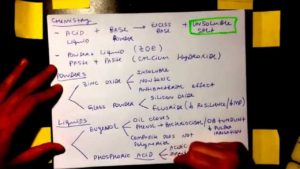 CHEMISTRY
- ACID + BASE → EXCESS BASE + UNSOLUBLE SALT
LIQUID POWDER
- POWDER + LIQUID (ZOE)
PASTE + PASTE (CALCIUM HYDROXIDE)
POWDERS
- ZINC OXIDE - INSOLUBLE
- NON TOXIC
- ANTIMICROBIAL EFFECT
- GLASS POWDER - SILICON OXIDE
- FLUORIDE
LIQUIDS
- EUGENOL - OIL CLOVES
- PHENOL
- COMPOSITE DOES NOT POLYMERIZE
- PHOSPHORIC ACID